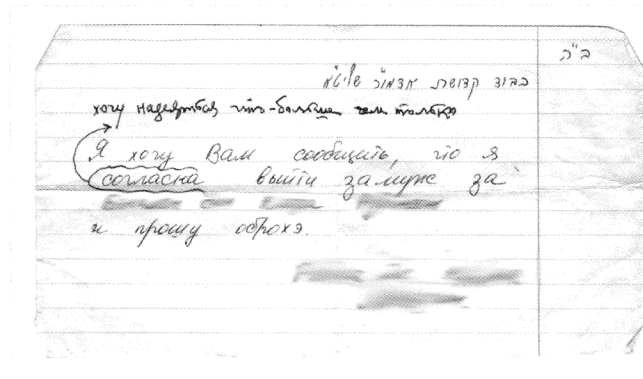 ב"ה
כבוד קדושת אדמו"ר שליט"א
хочу надеяться что-больше чем только
Я хочу Вам сообщить, что я
согласна выйти замуж за
и прошу оброхэ.